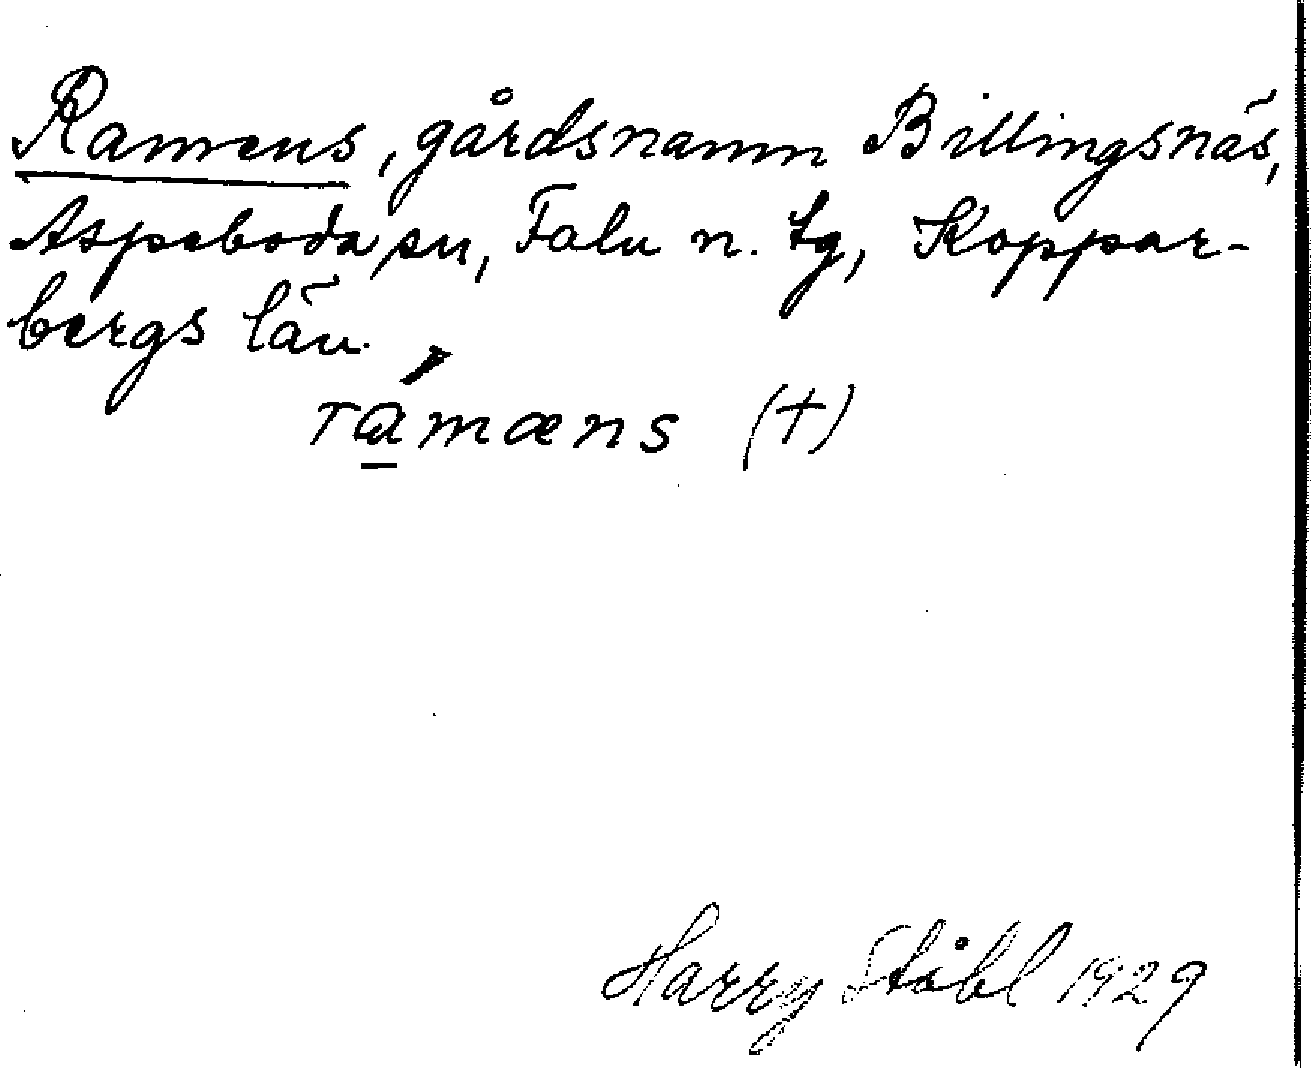 Ramens, gårdsnamn Billingsnäs,
Aspeboda sn, Falu n. tg, Koppar-
bergs län.
rá̱mæns (+)
Harry Ståhl 1929